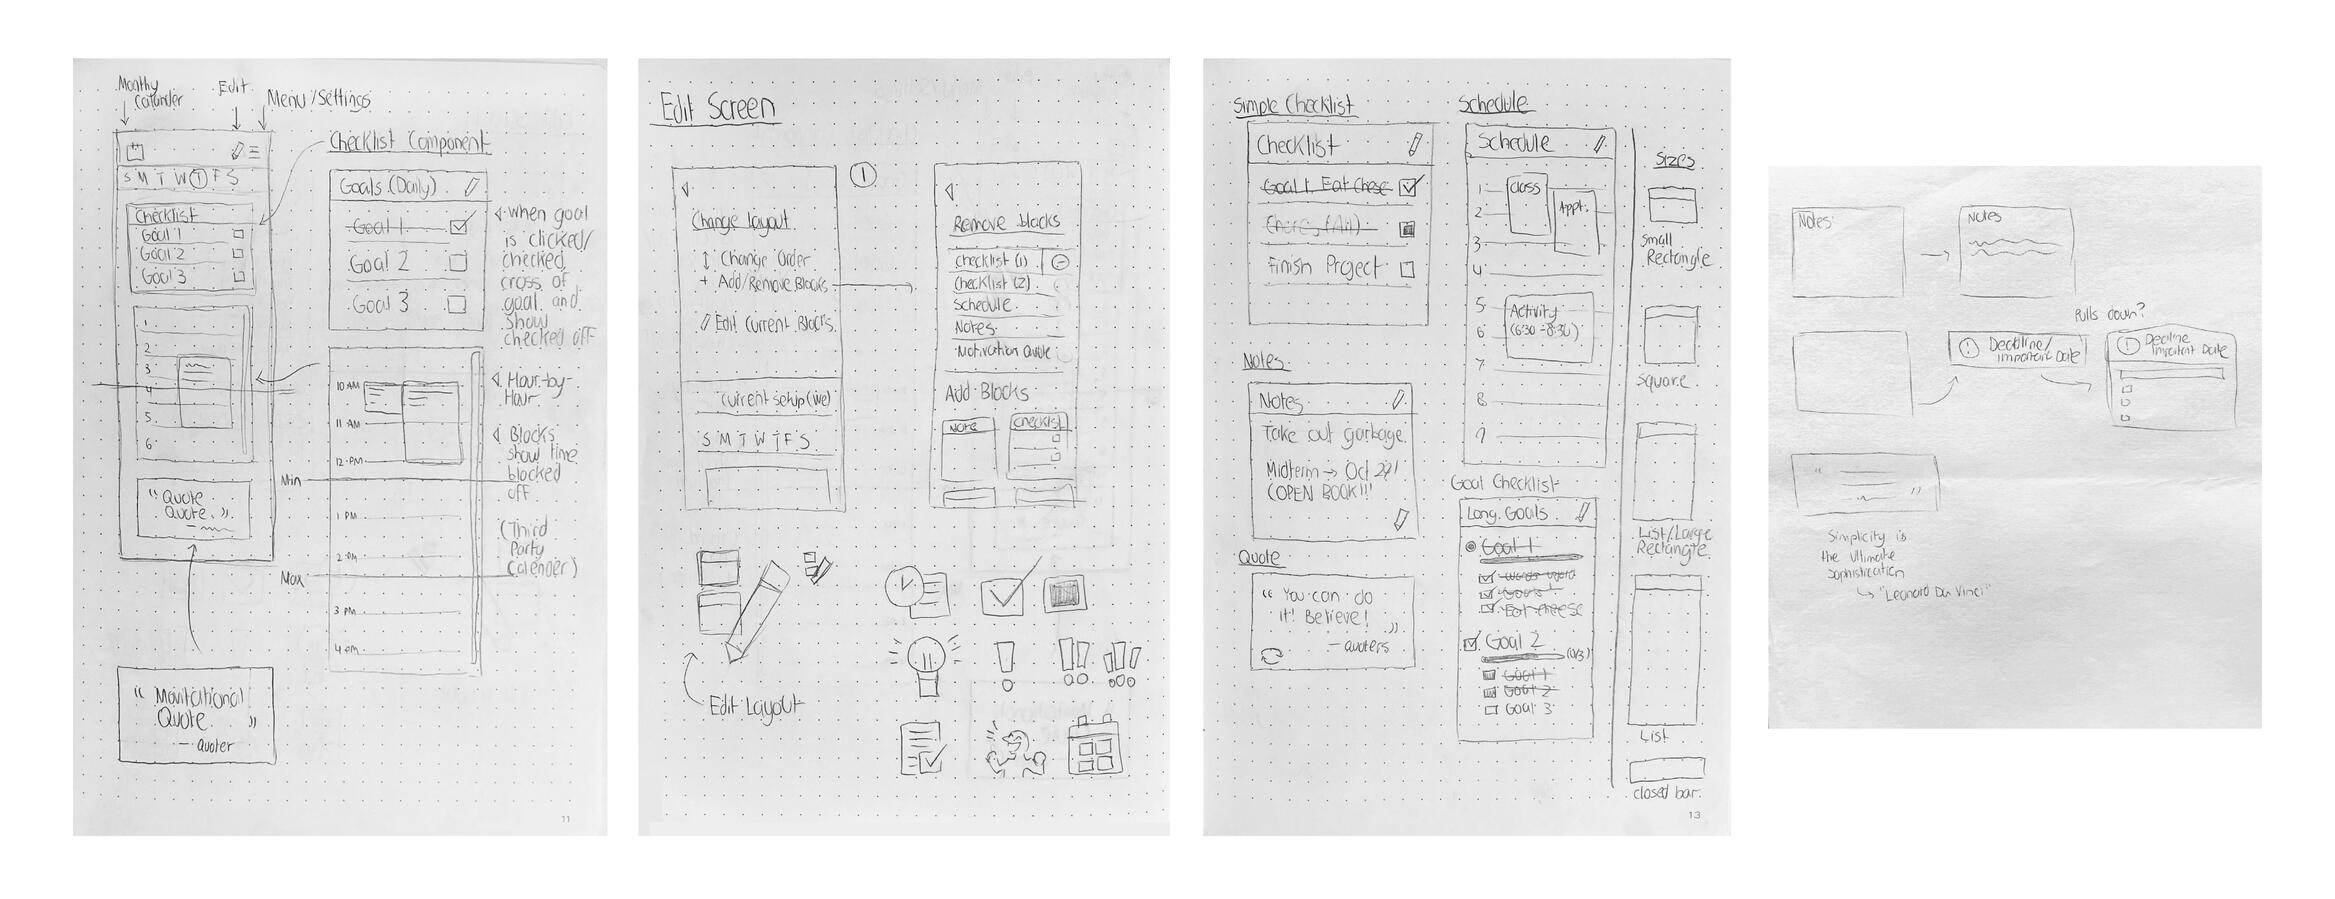 Monthy
Calander
Edit
Menu/Settings
S M T W T F S
Checklist
Goal 1
Goal 2
Goal 3
1
2
3
4
5
6
"Quote
Quote."
"Movitational
Quote"
- Quoter
Checklist Component
Goals (Daily)
Goal 1
Goal 2
Goal 3
When goal
is clicked/
checked
cross of
goal and
show
checked off
10 AM
11 AM
12 PM
Min
1 PM
2 PM
Max
3 PM
4 PM
Hour-by-
Hour
Blocks
show time
blocked
off
(Third
Party
Calender)
11
Edit Screen
1
Change Layout
Change Order
+ Add/Remove Blocks
Edit Current Blocks
Current setup (We)
S M T W T F S
Remove blocks
Checklist (1)
Checklist (2)
Schedule
Notes
Motivation Quote
Add Blocks
Note
Checklist
Edit Layout
Simple Checklist
Checklist
Goal 1. Eat Chese
Finish Project
Notes
Notes
Take out garbage
Midterm → Oct 29!
(OPEN BOOK!!!
Quote
"You can do
it! Believe!"
- quoters
Schedule
Schedule
1
2
3
4
5
6
7
8
9
Class
Appt.
Activity
(6:30-8:30)
Goal Checklist
Long Goals
Goal 1
Goal 1
Eat cheese
Goal 2
Goal 1
Goal 2
Goal 3
Sizes
Small
Rectangle
Square
List/Large
Rectangle
List
closed bar
13
Notes
Notes
Pulls down?
! Deadline/
Important Date
! Decline
Important Date
Simplicity is
the ultimate
sophistication
↳ "Leonard Da Vinci"